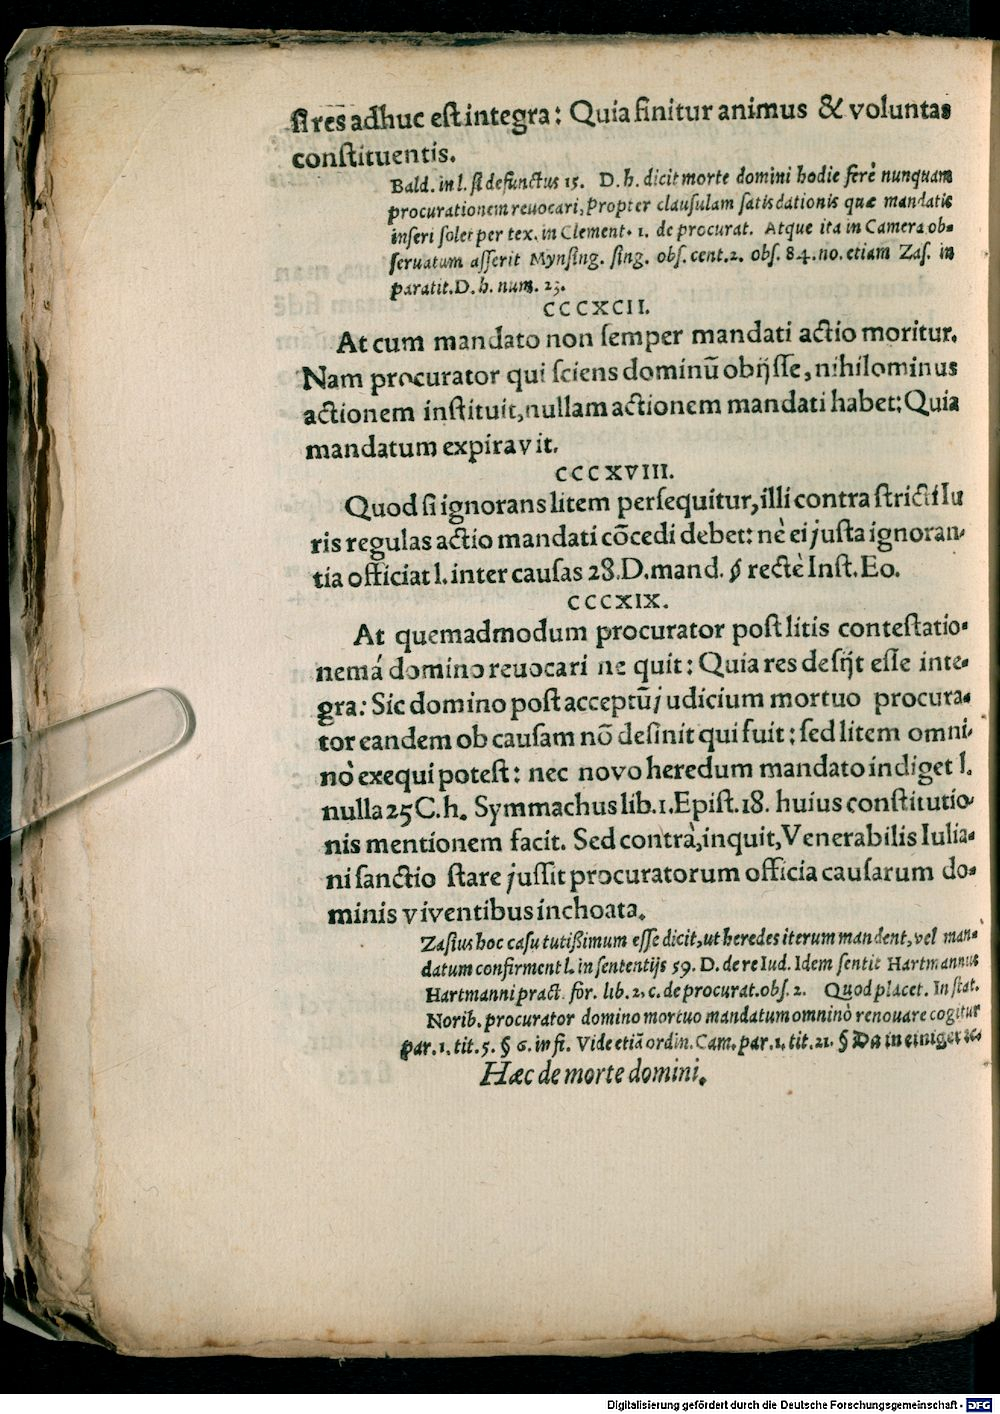 ſi res adhuc eſt integra: Quia finitur animus & voluntas
conſtituentis.
Bald. in l. ſi defunctus 15. D. h. dicit morte domini hodie ferè nunquam
procurationem reuocari, propter clauſulam ſatisdationis quæ mandatis
inſeri ſolet per tex. in Clement. 1. de procurat. Atque ita in Camera ob-
ſeruatum aſſerit Mynſing. ſing. obſ. cent. 2. obſ. 84. no. etiam Zaſ. in
paratit. D. h. num. 23.
CCCXCII.
At cum mandato non ſemper mandati actio moritur.
Nam procurator qui ſciens dominū obijſſe, nihilominus
actionem inſtituit, nullam actionem mandati habet: Quia
mandatum expiravit.
CCCXVIII.
Quod ſi ignorans litem perſequitur, illi contra ſtricti Iu
ris regulas actio mandati cōcedi debet: nè ei juſta ignoran-
tia officiat l. inter cauſas 28. D. mand. § rectè Inſt. Eo.
CCCXIX.
At quemadmodum procurator poſt litis conteſtatio-
nem á domino reuocari ne quit: Quia res deſijt eſſe inte-
gra: Sic domino poſt acceptū judicium mortuo procura-
tor eandem ob cauſam nō deſinit qui fuit; ſed litem omni-
nò exequi poteſt: nec novo heredum mandato indiget l.
nulla 25 C. h. Symmachus lib. 1. Epiſt. 18. huius conſtitutio-
nis mentionem facit. Sed contrà, inquit, Venerabilis Iulia-
ni ſanctio ſtare juſſit procuratorum officia cauſarum do-
minis viventibus inchoata.
Zaſius hoc caſu tutiſſimum eſſe dicit, ut heredes iterum mandent, vel man-
datum confirment l. in ſententijs 59. D. de re Iud. Idem ſentit Hartmannus
Hartmanni pract. för. lib. 2, c. de procurat. obſ. 2. Quod placet. In ſtat.
Norib. procurator domino mortuo mandatum omninò renouare cogitur
par. 1. tit. 5. § 6. in fi. Vide etiā ordin. Cam. par. 1. tit. 21. § Da in einiger ꝛc.
Hæc de morte domini.
Digitalisierung gefördert durch die Deutsche Forschungsgemeinschaft - DFG